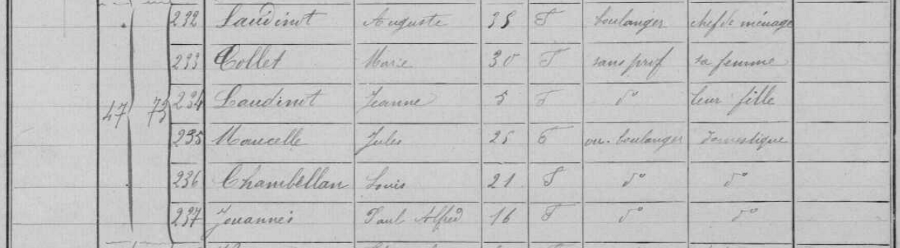 232 Laudinet Auguste 35 F boulanger chef de ménage
233 Collet Marie 30 F sans prof sa femme
47 73 234 Laudinet Jeanne 5 F d° leur fille
235 Maucelle Jules 25 F ou. boulanger domestique
236 Chambellan Louis 21 F d° d°
237 Jouannès Paul Alfred 16 F d° d°